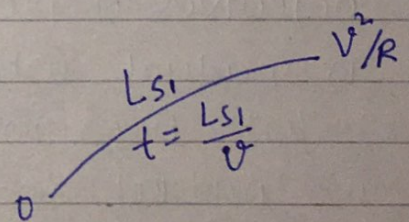 V²/R
LS₁
t = LS₁/v
0